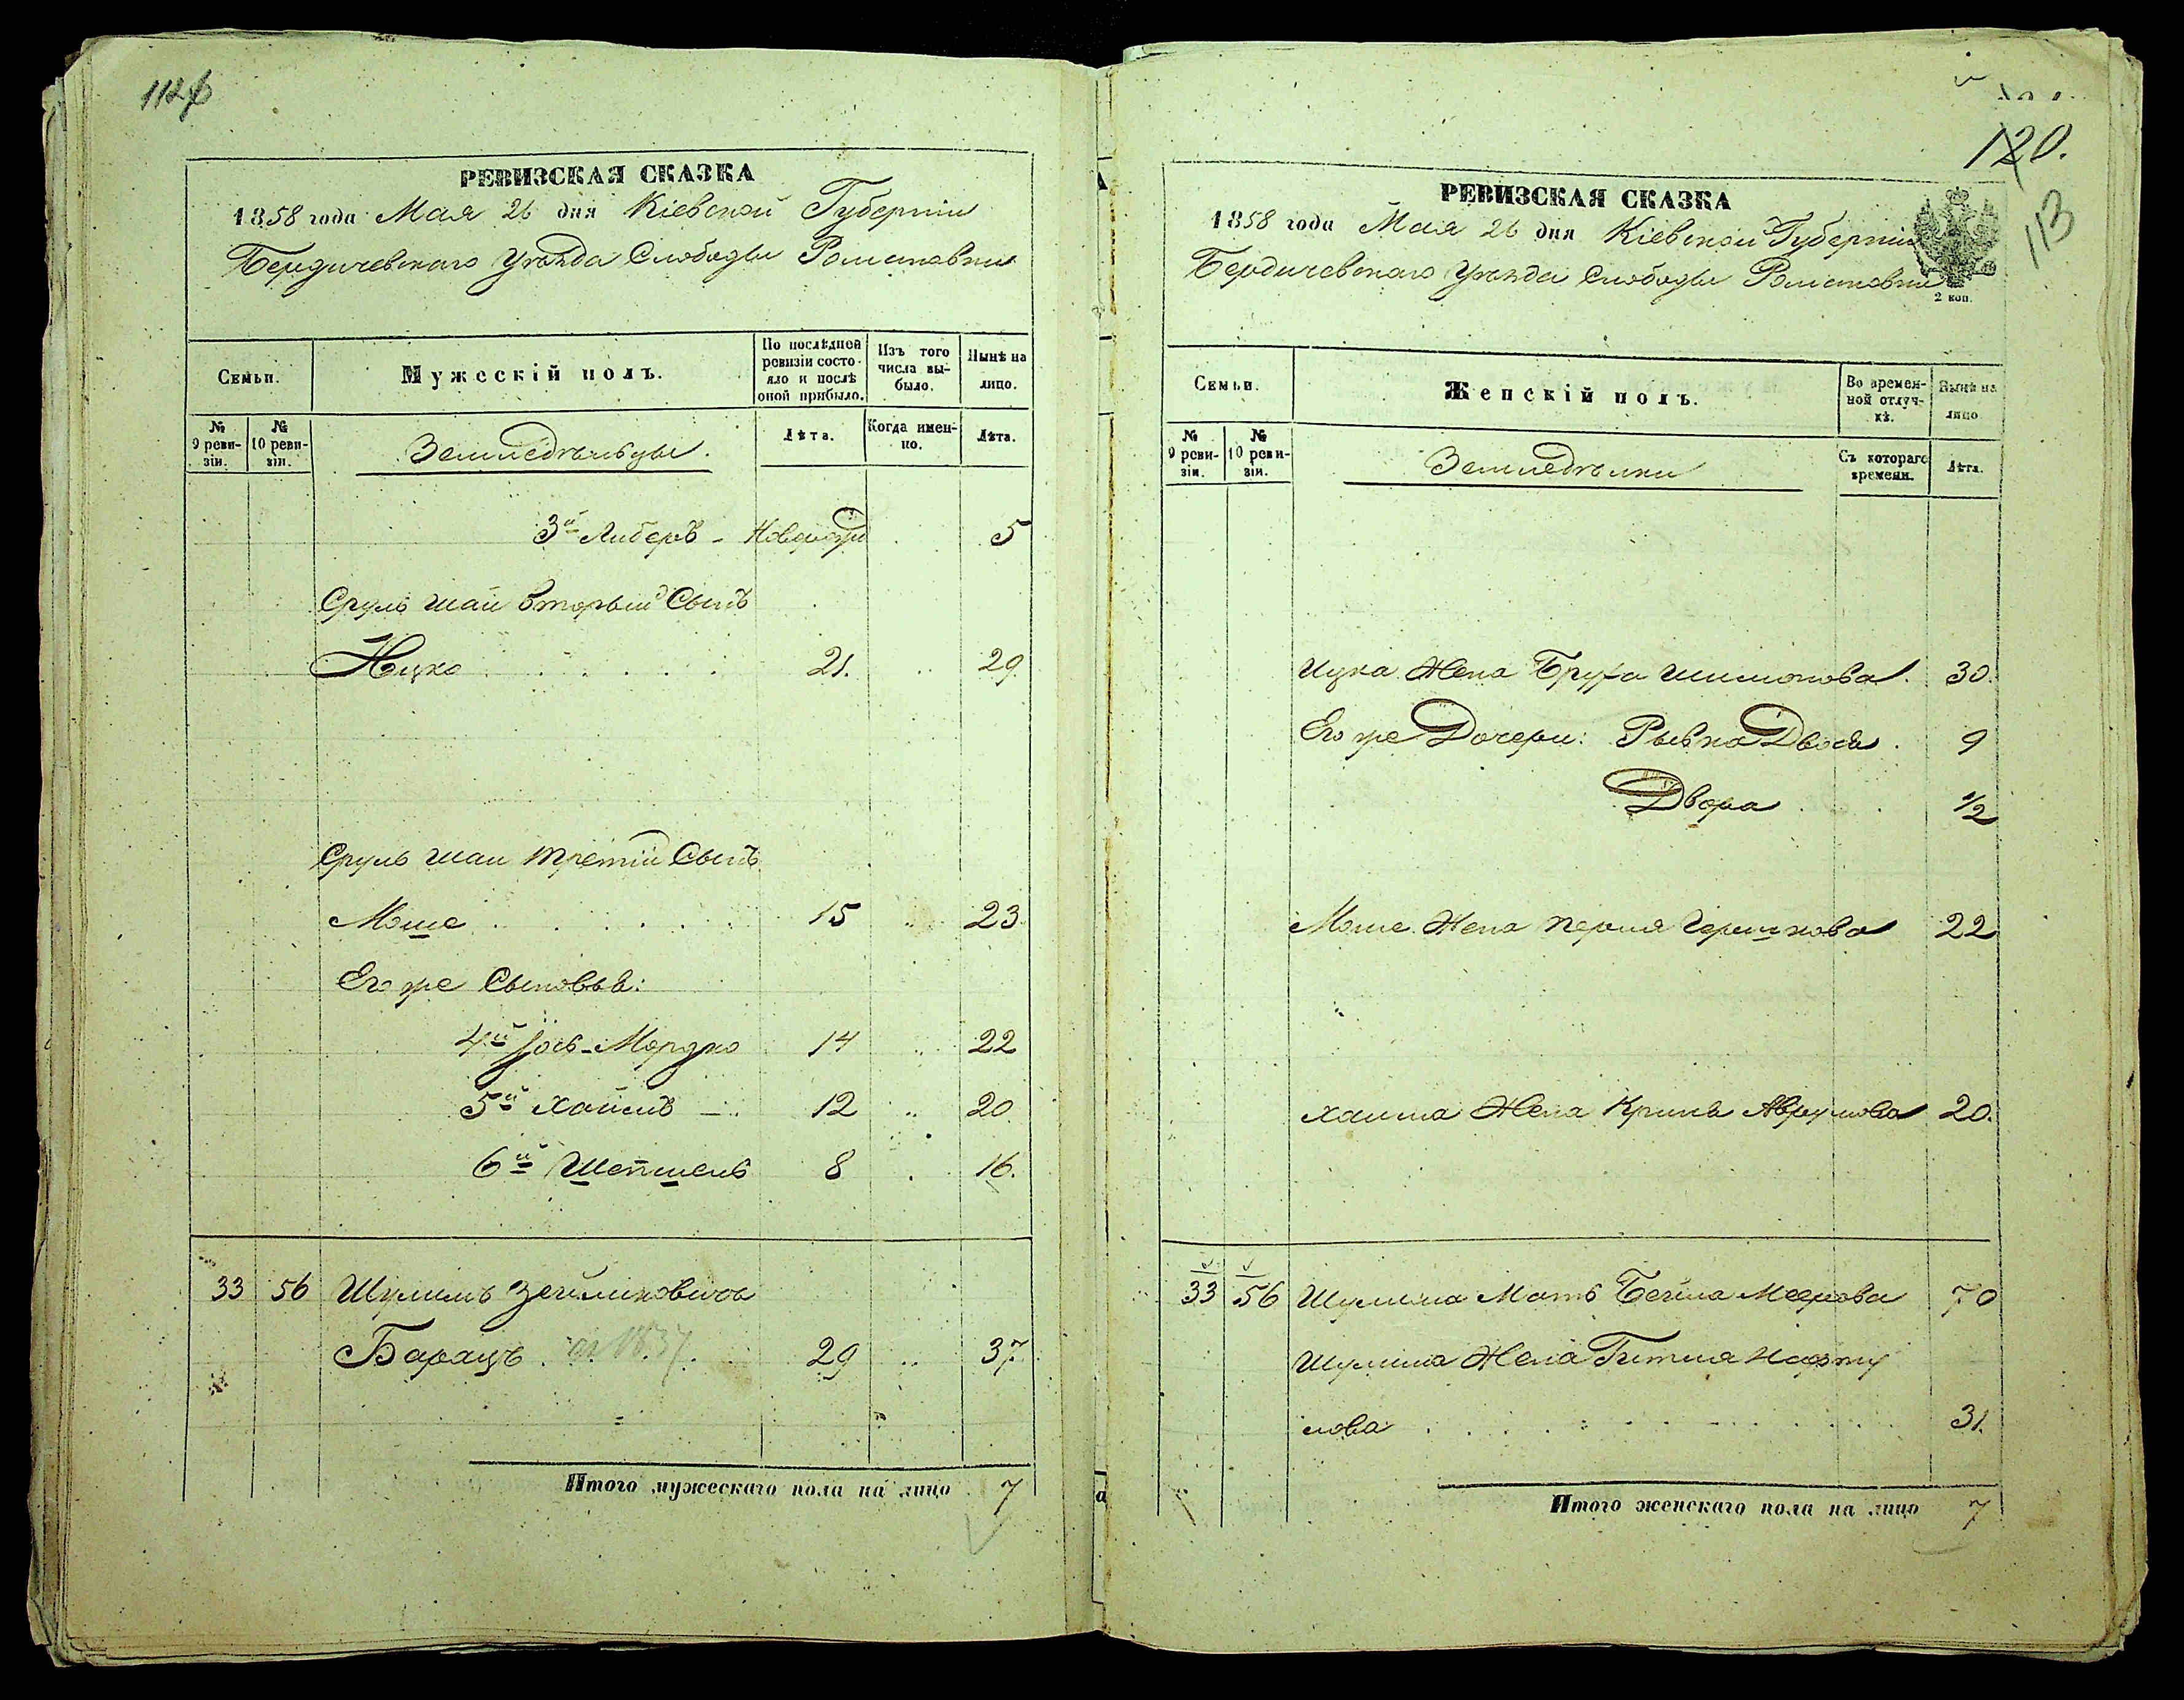 112
РЕВИЗСКАЯ СКАЗКА
1858 года Мая 26 дня Кіевской Губерніи
Бердичевскаго Уѣзда Слободы Романовки
Семьи.
Мужескій полъ.
По послѣдней ревизіи состо-
яло и послѣ оной прибыло.
Изъ того числа вы-
было.
Нынѣ на лицо.
№ 9 реви-
зіи.
№ 10 реви-
зіи.
Земледѣльцы.
Лѣта.
Когда имен-
но.
Лѣта.
3й Либеръ - Новорожд 5
Сруль Шаи вторый Сынъ
Ицко 21. 29
Сруль Шаи третій Сынъ
Моше 15 23
Его же Сыновья:
4й Іось-Мордко 14 22
5й Хаимъ 12 20
6й Шепшель 8 16.
33 56 Шулимъ Зейликовичъ
Барацъ 1837 29 37
Итого мужескаго пола на лицо 7
120.
113
РЕВИЗСКАЯ СКАЗКА
1858 года Мая 26 дня Кіевской Губерніи
Бердичевскаго Уѣзда Слободы Романовки
2 коп.
Семьи.
Женскій полъ.
Во времен-
ной отлуч-
кѣ.
Нынѣ на лицо
№ 9 реви-
зіи.
№ 10 реви-
зіи.
Земледѣлки
Съ котораго времени.
Лѣта.
Ицка Жена Бруха Шимонова. 30.
Его же Дочери: Рывка Двося 9
Двора 1/2
Моше Жена Перля Гершкова 22
Хаима Жена Крыня Аврумова 20.
33 56 Шулима Мать Бейла Меерова 70
Шулима Жена Гитля Нафту
лова 31.
Итого женскаго пола на лицо 7